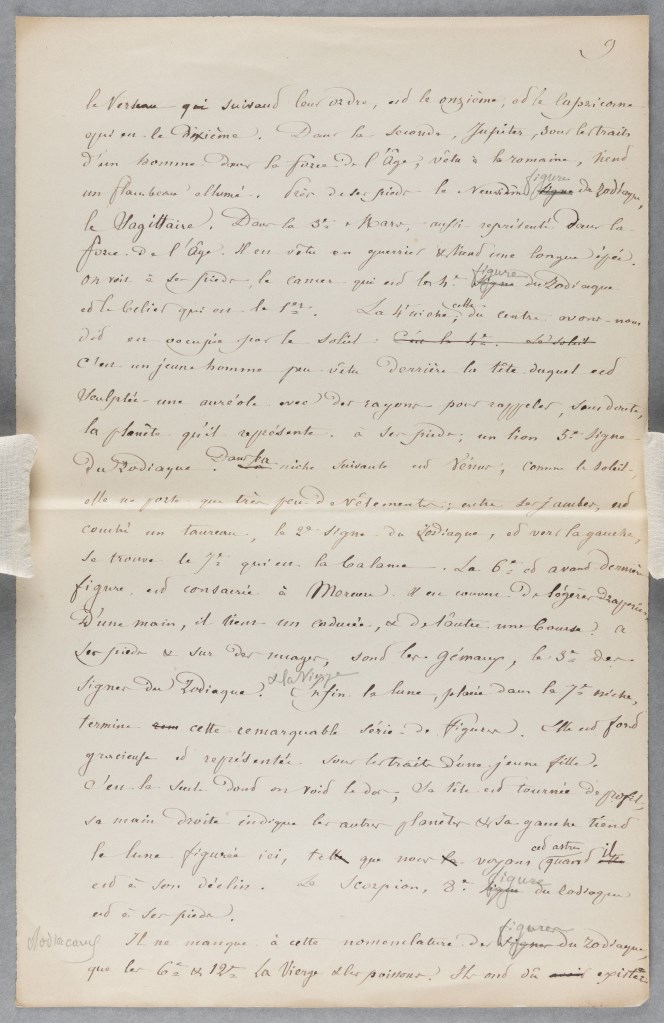 9
le Verseau qui suivant leur ordre, est le onzième, et le Capricorne
qui en le dixième. Dans la seconde, Jupiter, sous les traits
d'un homme dans la force de l'Âge, vêtu à la romaine, tient
un flambeau allumé. Près de ses pieds le Neuvième signe figure du Zodiaque,
le Sagittaire. Dans la 3e Mars, aussi représenté dans la
force de l'Âge. Il en vêtu en guerrier & tient une longue épée.
On voit à ses pieds le cancer qui est le 4e signe figure du Zodiaque
et le belier qui en le 1er. La 4e niche, celle du centre avons-nous
dit en occupée par le soleil. C'en la 4e. Le soleil
C'en un jeune homme peu vêtu derrière la tête duquel est
sculptée une auréole avec des rayons pour rappeler, sans doute,
la planète qu'il représente. à ses pieds, un lion 5e signe
du Zodiaque. Dans la niche suivante est Vénus; comme le soleil,
elle ne porte que très peu de vêtements; entre ses jambes, est
couché un taureau, le 2e signe du Zodiaque, et vers la gauche,
se trouve le 7e qui en la balance. La 6e et avant dernière
figure est consacrée à Mercure. Il en couvert de légères draperies
D'une main, il tient un caducée, & de l'autre une bourse. a
ses pieds & sur des nuages, sont les gémeaux, le 3e des
signes du Zodiaque & la Vierge. Enfin la lune, placée dans la 7e niche,
termine cette remarquable série de figures. Elle est fort
gracieuse et représentée sous les traits d'une jeune fille.
C'en la seule dont on voit le dos; sa tête est tournée de profil,
sa main droite indique les autres planètes & sa gauche tient
la lune figurée ici, telle que nous la voyons cet astre quand il
est à son déclin. Le Scorpion, 8e signe figure du Zodiaque
est à ses pieds.
Zodiacaux
Il ne manque à cette nomenclature des signes figures du Zodiaque,
que les 6e & 12e La Vierge & les poissons. Ils ont dû exister